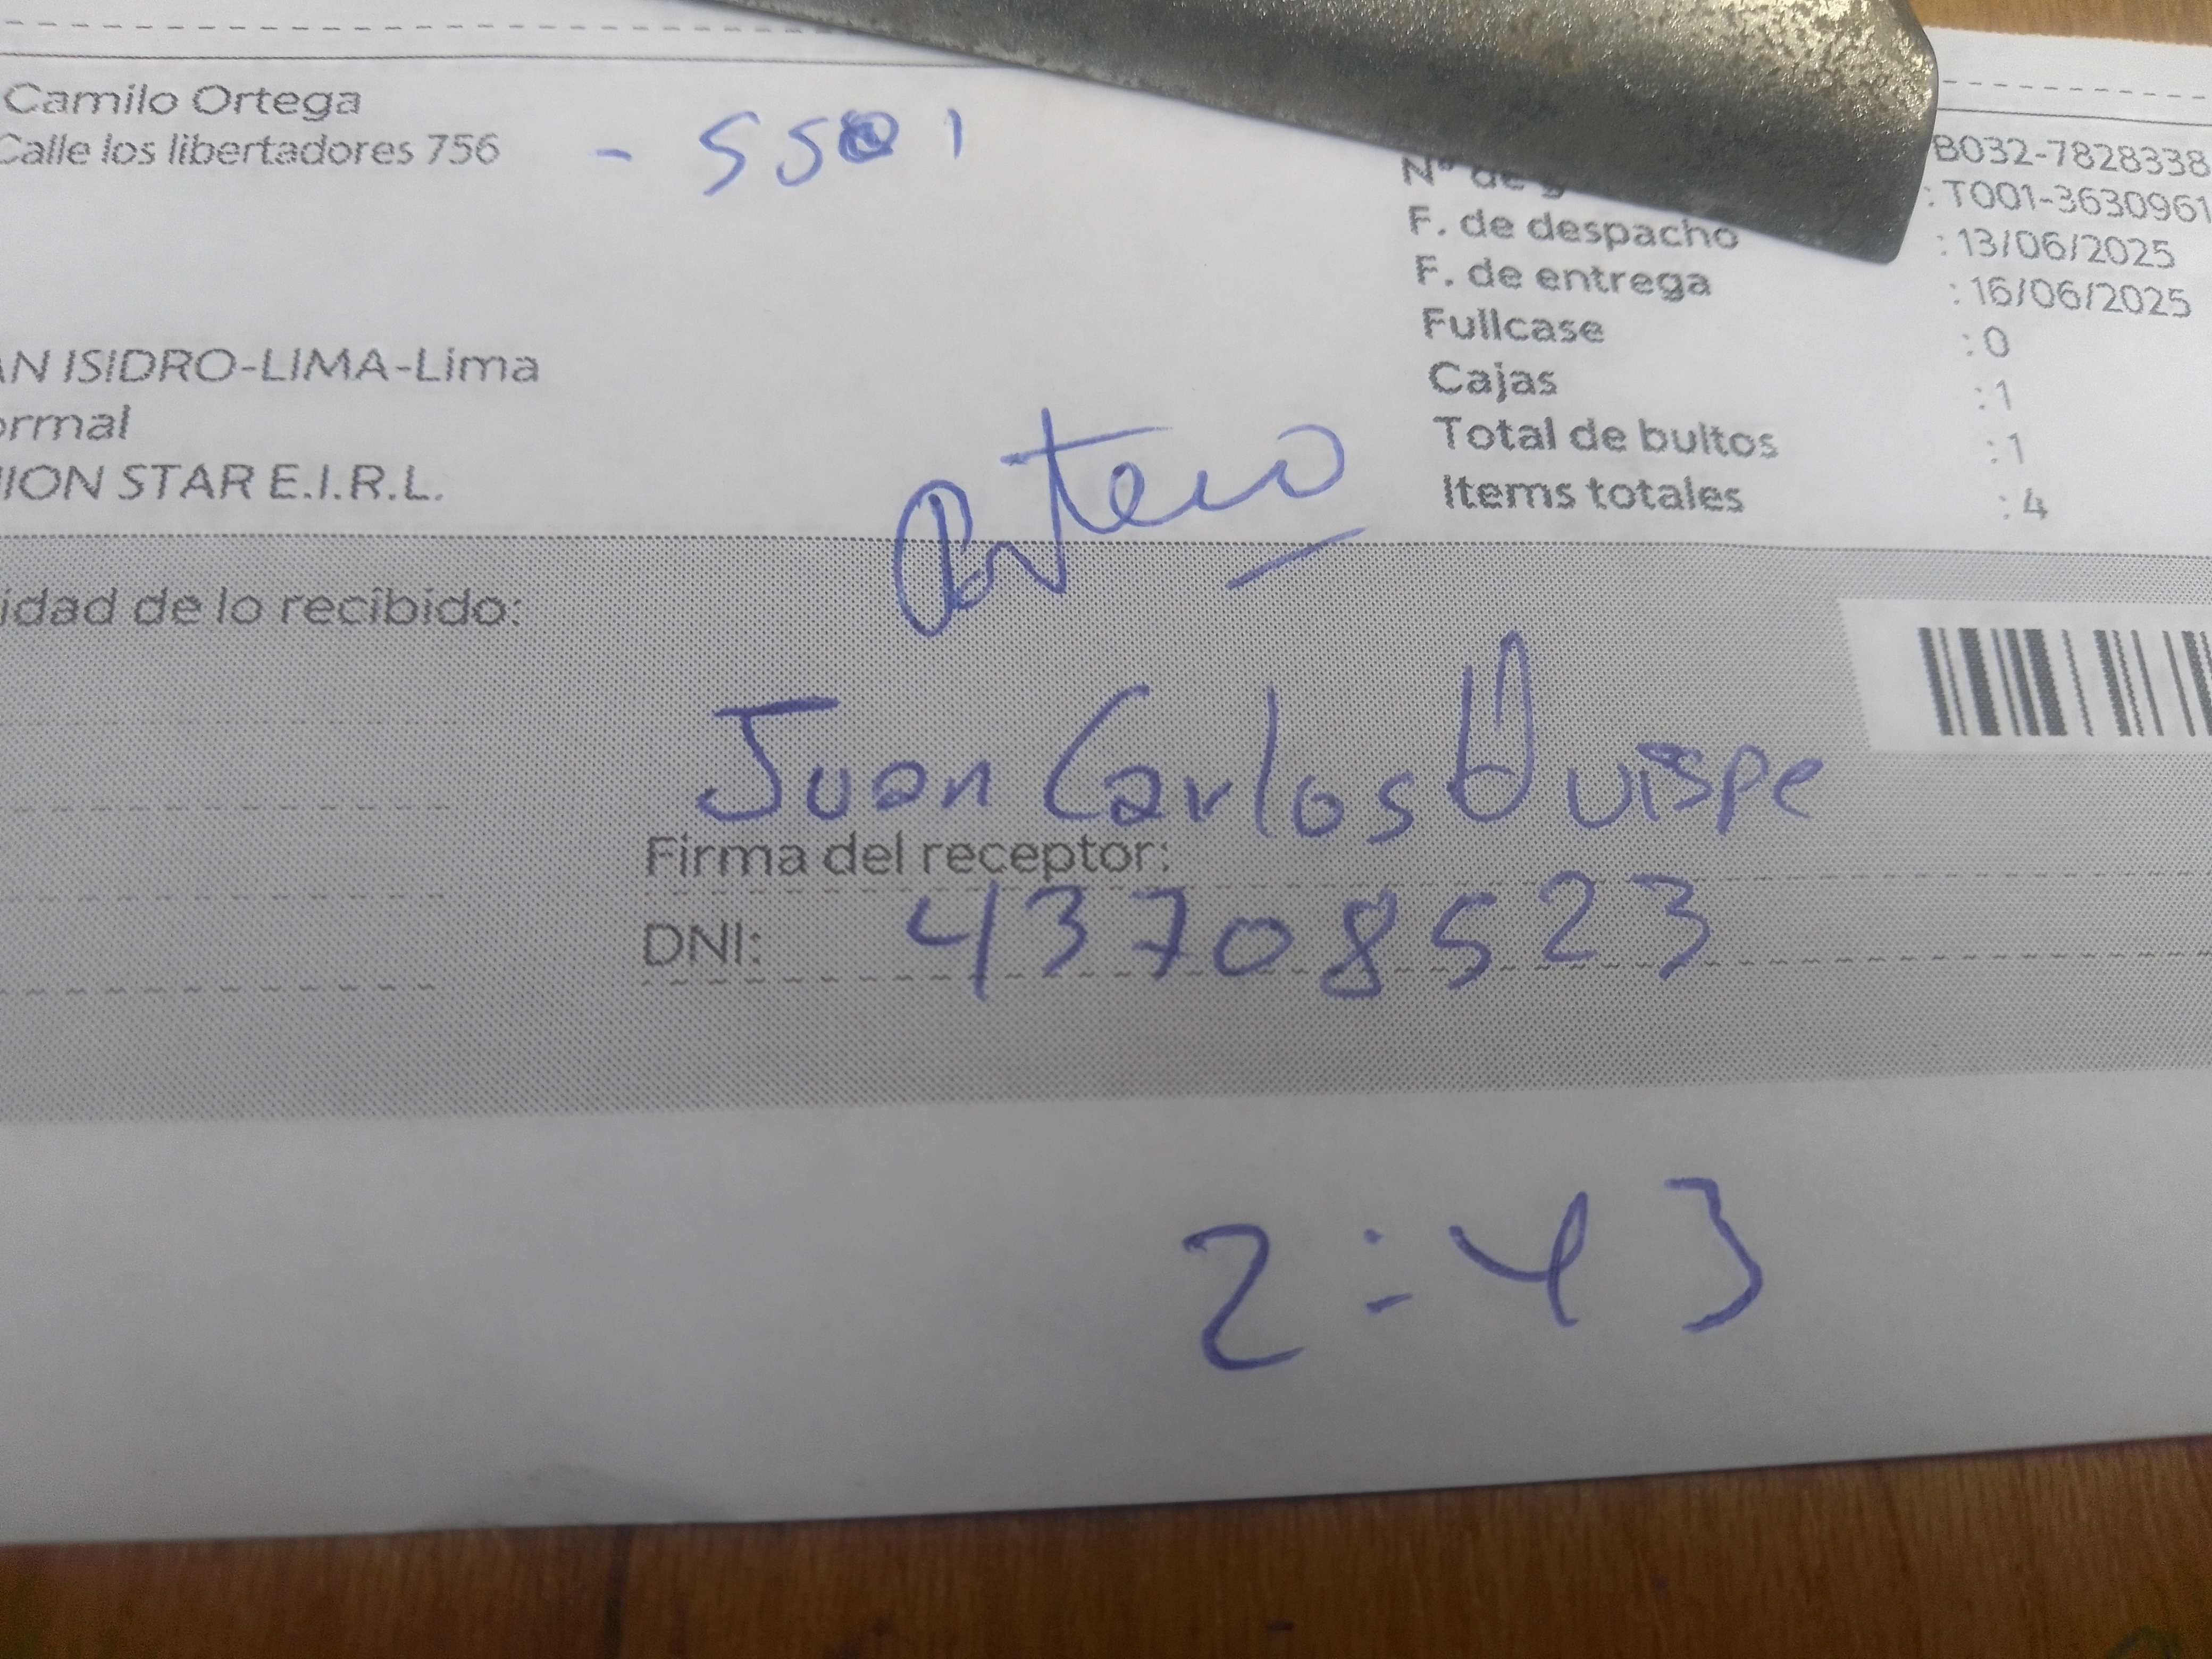 Camilo Ortega
Calle los libertadores 756 - 5501
B032-7828338
Nº de : T001-3630961
F. de despacho : 13/06/2025
F. de entrega : 16/06/2025
Fullcase : 0
AN ISIDRO-LIMA-Lima
Cajas : 1
ormal
Total de bultos : 1
ION STAR E.I.R.L.
Items totales : 4
Portero
idad de lo recibido:
Juan Carlos Quispe
Firma del receptor:
DNI: 43708523
2:43